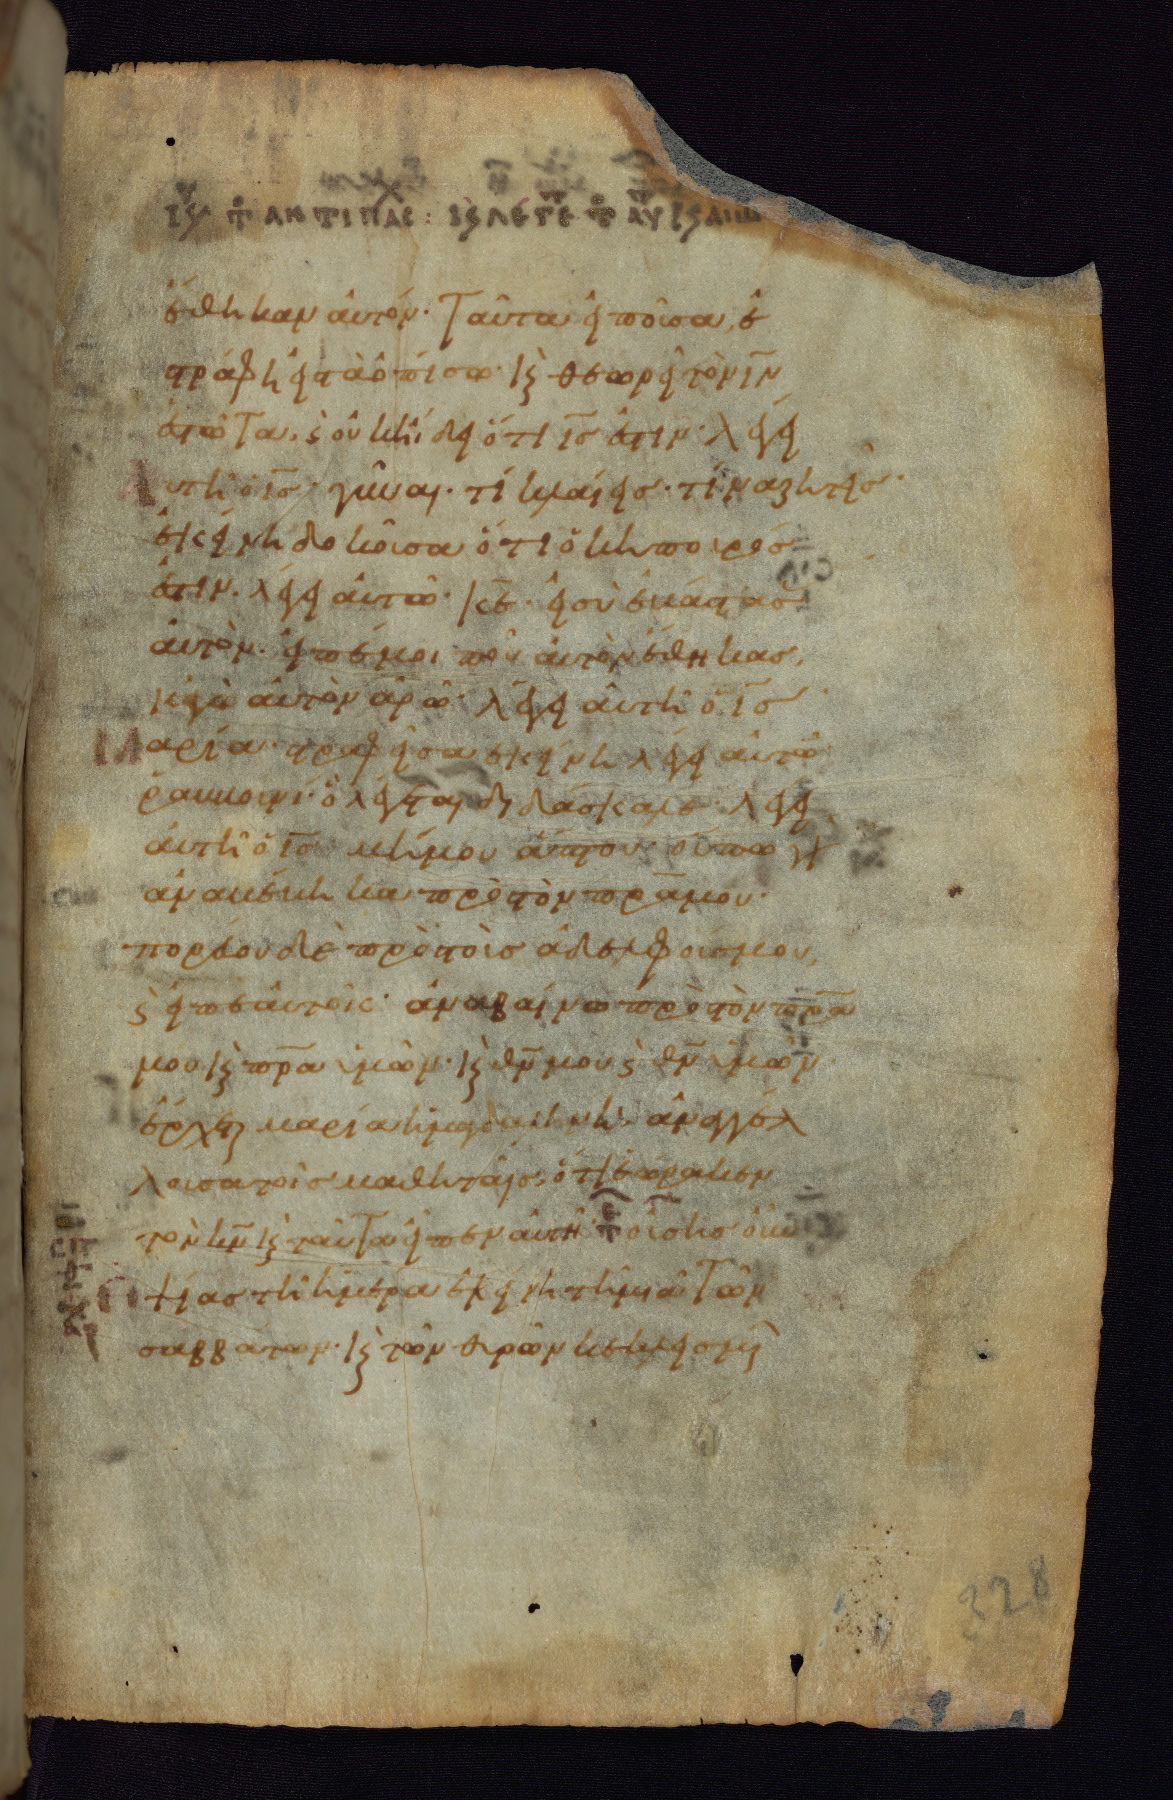 ἔθηκαν ἀυτόν· Ταῦτα εἰποῦσα, ἐ
στράφη εἰς τὰ ὀπίσω· κ̀ θεωρεῖ τὸν ιν̅
ἑστῶτα. κ̀ οὐκ ἤδει ὅτι ις̅ ἐστιν· λέγει
Αυτῆ ὁ ις̅· γύναι· τί κλαίεις· τίνα ζητεῖς·
ἐκείνη δοκοῦσα ὅτι ὁ κηπουρός
ἐστιν. λέγει ἀυτῶ· κε̅· εἰ σὺ ἐβάστασας
ἀυτὸν· εἰπέ μοι ποῦ ἀυτὸν ἔθηκας,
κἀγὼ ἀυτὸν ἀρῶ· λέγει ἀυτῆ ὁ ις̅
Μαρία· στραφεῖσα ἐκείνη λέγει ἀυτῶ
ῥαββουνί· ὃ λέγεται διδάσκαλε· λέγει
ἀυτῆ ὁ ις̅· μή μου ἅπτου· οὔπω γὰρ
ἀναβέβηκα πρὸς τὸν πρ̅α μου·
πορεύου δὲ πρὸς τοὺς ἀδελφούς μου,
κ̀ εἰπὲ ἀυτοῖς· ἀναβαίνω πρὸς τὸν πρ̅α
μου κ̀ πρ̅α ὑμῶν· κ̀ θν̅ μου κ̀ θν̅ ὑμῶν
ἔρχεται μαρία ἡ μαγδαληνὴ, ἀναγγέλ
λουσα τοῖς μαθηταῖς, ὅτι ἑώρακεν
τὸν κν̅ κ̀ ταῦτα εἶπεν ἀυτῆ· οὔσης οὖν
ὀψίας τῆ ἡμέρα ἐκείνη τῆ μιᾶ Τῶν
σαββάτων· κ̀ τῶν θυρῶν κεκλεισμέ
328